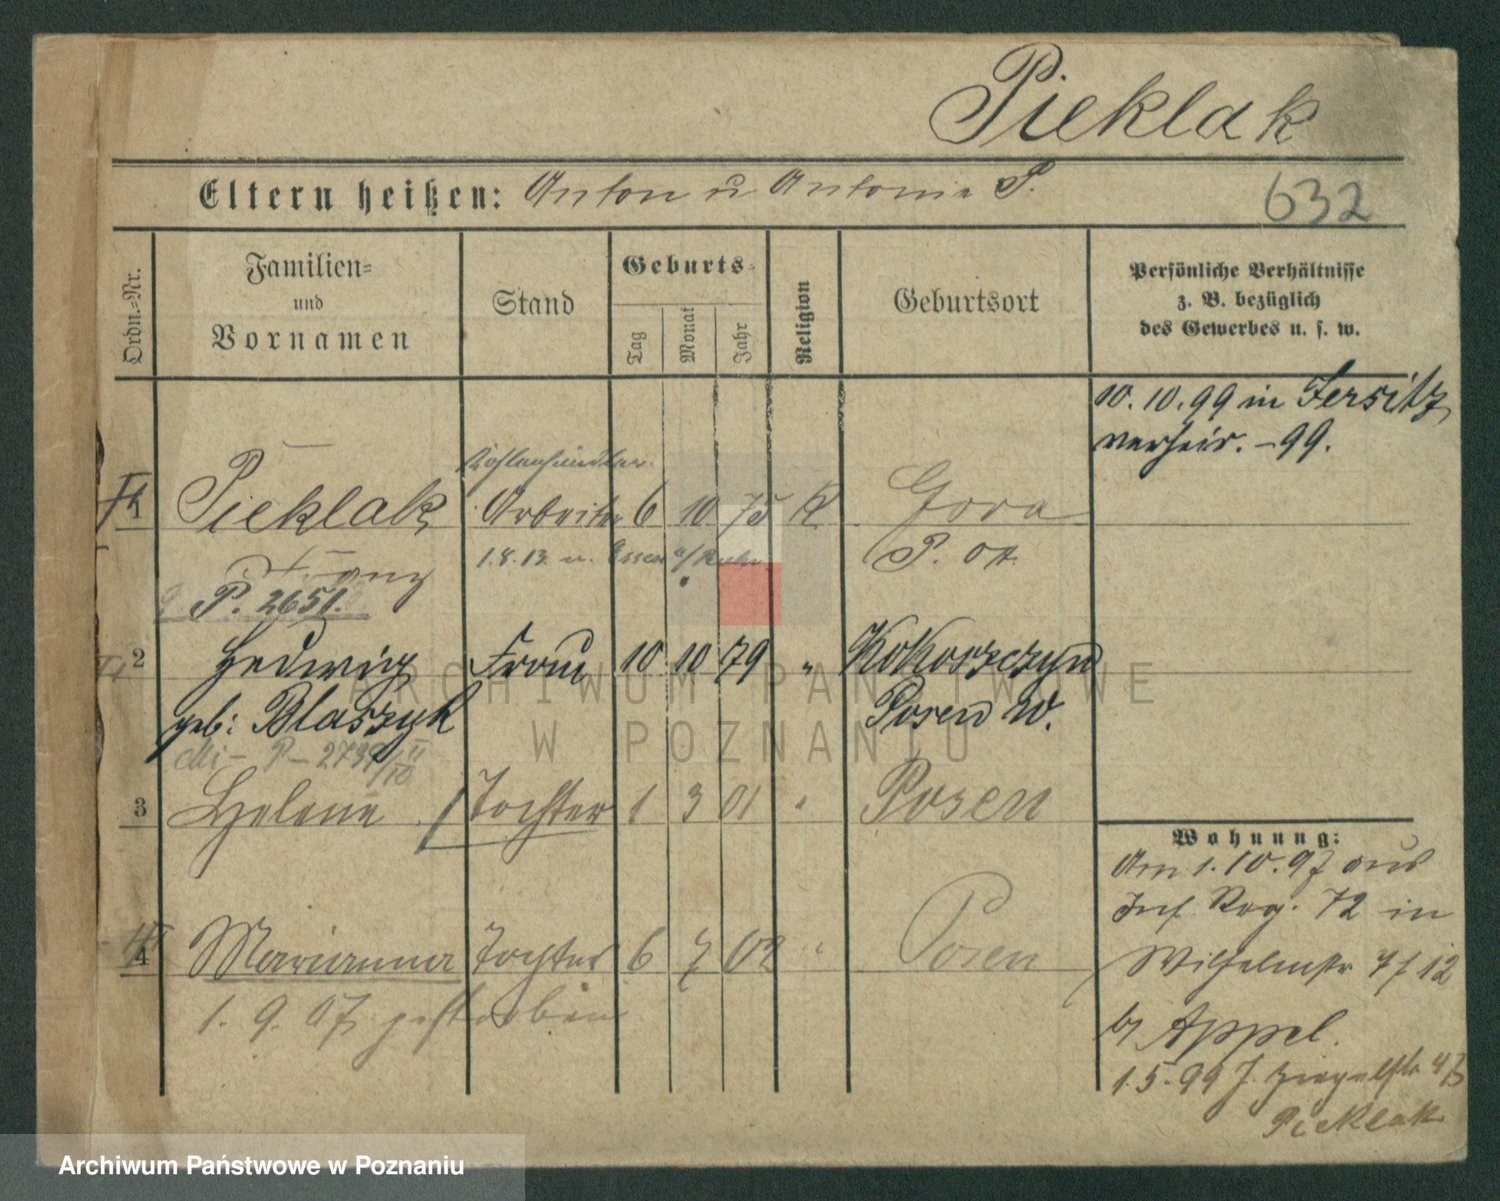 Pieklak
Eltern heißen: Anton u Antonie P.
632
Ordn.-Nr.
Familien-
und
Vornamen
Stand
Geburts-
Tag
Monat
Jahr
Religion
Geburtsort
Persönliche Verhältnisse
z. B. bezüglich
des Gewerbes u. s. w.
10.10.99 in Jersitz
verheir. -99.
Kohlenhändler
1 Pieklak Arbeiter 6 10 75 K Gora
Franz 1.8.13 n. Essen a/Ruhr P. Ost
P. 2651.
2 Hedwig Frau 10 10 79 " Kokoszczyn
geb: Blaszyk Posen W.
3 Helene Tochter 1 3 01 " Posen
Wohnung:
Am 1.10.97 aus
Inf. Reg. 72 in
4 Marianna Tochter 6 7 02 " Posen
Wilhelmstr 7/12
1.9.07 gestorben
by Appel.
1.5.99 J.
Pieklak
ARCHIWUM PAŃSTWOWE
W POZNANIU
Archiwum Państwowe w Poznaniu